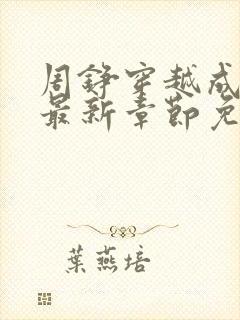 周錚穿越成
最新章節免
葉燕培